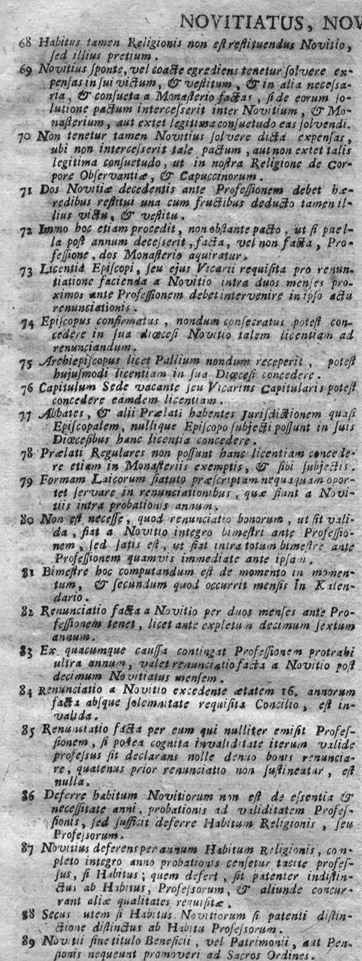 NOVITIATUS, NOV
68 Habitus tamen Religionis non est restituendus Novitio,
sed illius pretium.
69 Novitius sponte, vel coacte egrediens tenetur solvere ex-
pensas in sui victum, & vestitum, & in alia necessa-
ria, & consueta a Monasterio factas, si de eorum so-
lutione pactum intercesserit inter Novitium, & Mo-
nasterium, aut extet legitima consuetudo eas solvendi.
70 Non tenetur tamen Novitius solvere dicta expensas,
ubi non intercesserit tale pactum, aut non extet talis
legitima consuetudo, ut in nostra Religione de Cor-
pore Observantiæ, & Capuccinorum.
71 Dos Novitiæ decedentis ante Professionem debet hæ-
redibus restitui una cum fructibus deducto tamen il-
lius victu, & vestitu.
72 Immo hoc etiam procedit, non obstante pacto, ut si puel-
la post annum decesserit, facta, vel non facta, Pro-
fessione, dos Monasterio aquiratur.
73 Licentia Episcopi, seu ejus Vicarii requisita pro renun-
tiatione facienda a Novitio intra duos menses pro-
ximos ante Professionem debet intervenire in ipso actu
renunciationis.
74 Episcopus confirmatus, nondum consecratus potest con-
cedere in sua diœcesi Novitio talem licentiam ad
renunciandum.
75 Archiepiscopus licet Pallium nondum receperit, potest
hujusmodi licentiam in sua Diœcesi concedere.
76 Capitulum Sede vacante seu Vicarius Capitularis potest
concedere eamdem licentiam.
77 Abbates, & alii Prælati habentes Jurisdictionem quasi
Episcopalem, nullique Episcopo subjecti possunt in suis
Diœcesibus hanc licentia concedere.
78 Prælati Regulares non possunt hanc licentiam concede-
re etiam in Monasteriis exemptis, & sibi subjectis.
79 Formam Laicorum statuto præscriptam nequaquam opor-
tet servare in renunciationibus, quæ fiunt a Novi-
tiis intra probationis annum.
80 Non est necesse, quod renunciatio bonorum, ut sit vali-
da, fiat a Novitio integro bimestri ante Professio-
nem, sed satis est, ut fiat intra totum bimestre ante
Professionem quamvis immediate ante ipsam.
81 Bimestre hoc computandum est de momento in momen-
tum, & secundum quod occurrit mensis in Kalen-
dario.
82 Renunciatio facta a Novitio per duos menses ante Pro-
fessionem tenet, licet ante expletum decimum sextum
annum.
83 Ex quacumque caussa contingat Professionem protrahi
ultra annum, valet renunciatio facta a Novitio post
decimum Novitiatus mensem.
84 Renunciatio a Novitio excedente ætatem 16. annorum
facta absque solemnitate requisita Concilio, est in-
valida.
85 Renunciatio facta per eum qui nulliter emisit Profes-
sionem, si postea cognita invaliditate iterum valide
professus sit declarans nolle denuo bonis renuncia-
re, quatenus prior renunciatio non sustineatur, est
nulla.
86 Deferre habitum Novitiorum non est de essentia &
necessitate anni, probationis ad validitatem Profes-
sionis, sed sufficit deferre Habitum Religionis, seu
Professorum.
87 Novitius deferens per annum Habitum Religionis, com-
pleto integro anno probationis censetur tacite profes-
sus, si Habitus; quem defert, sit patenter indistin-
ctus ab Habitus, Professorum, & aliunde concur-
rant aliæ qualitates requisitæ.
88 Secus utem si Habitus Novitiorum si patenti distin-
ctione distinctus ab Habitu Professorum.
89 Novitii sine titulo Beneficii, vel Patrimonii, aut Pen-
sionis nequeunt promoveri ad Sacros Ordines.